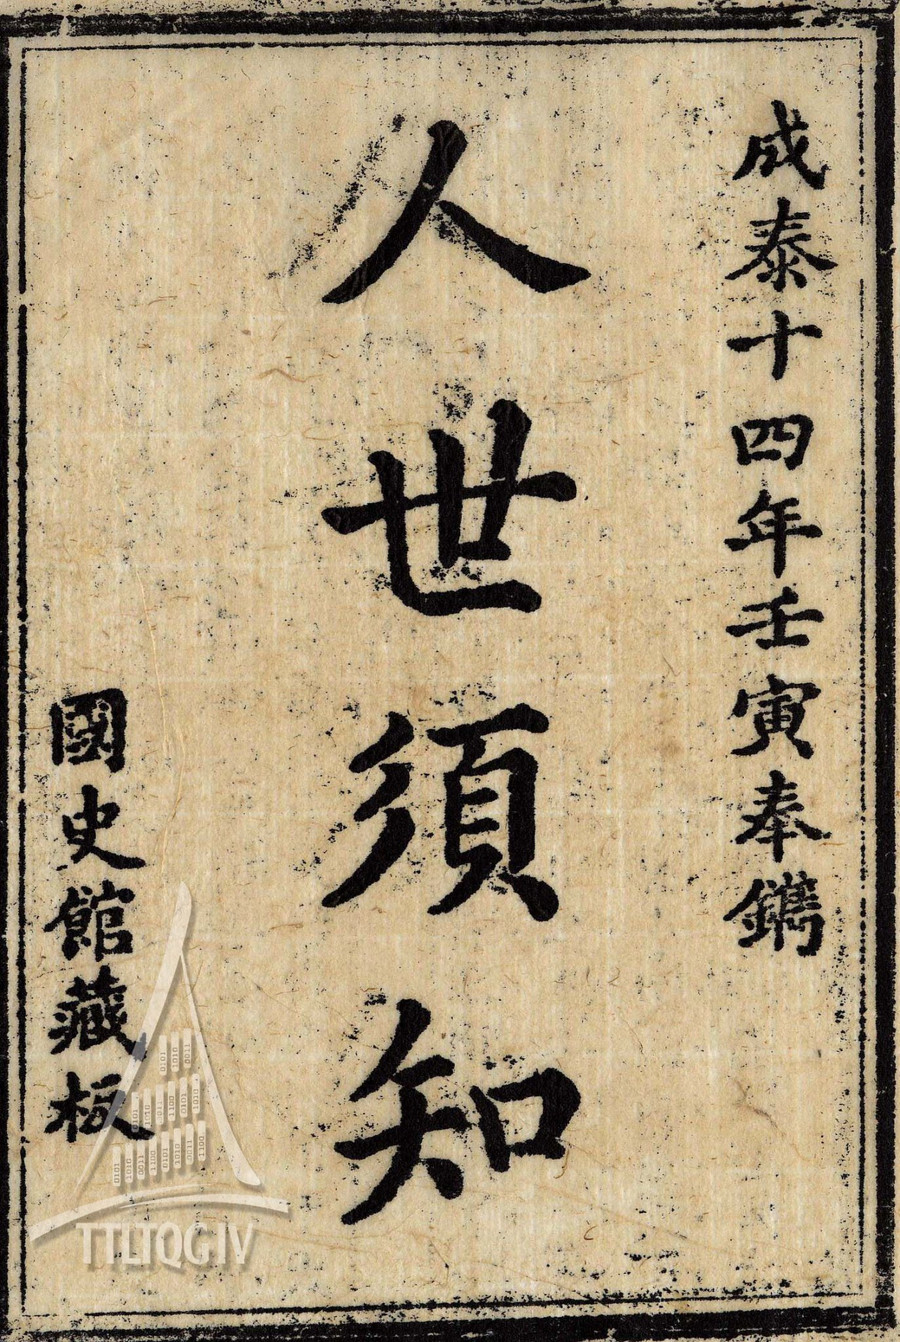 成泰十四年壬寅奉鐫
人世須知
國史館藏板
TTLIQGIV